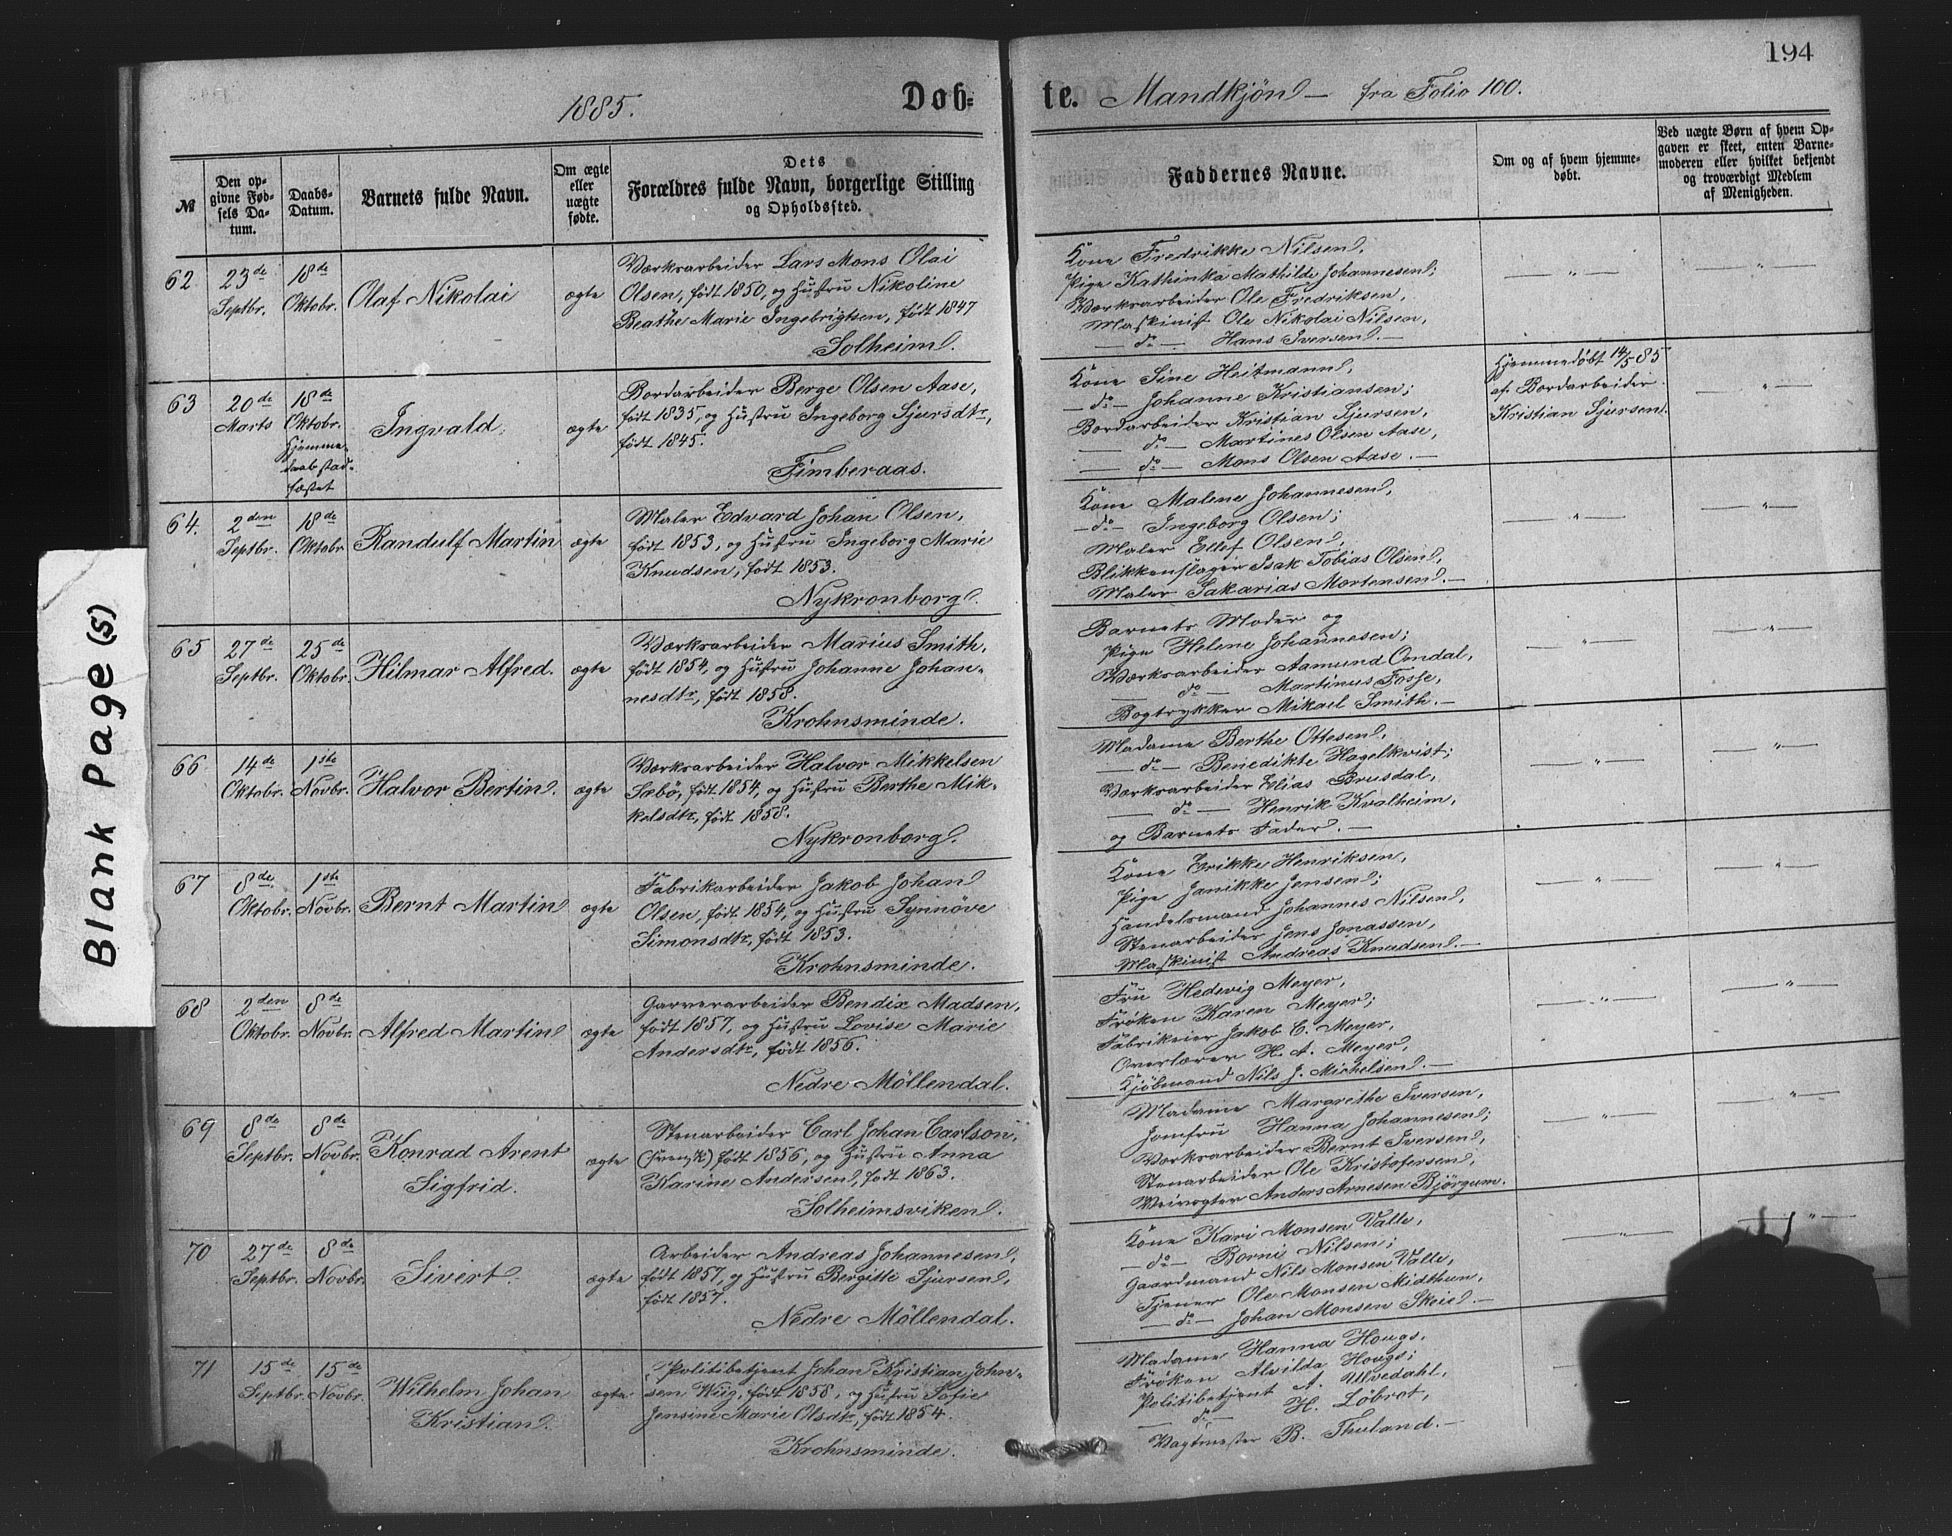 194
1885.
Døb-
te. Mandkjøn - fra Folio 100.
№
Den op-
givne Fød-
sels Da-
tum.
Daabs-
Datum.
Barnets fulde Navn.
Om ægte
eller
uægte
fødte.
Dets
Forældres fulde Navn, borgerlige Stilling
og Opholdssted.
Faddernes Navne.
Om og af hvem hjemme-
døbt.
Ved uægte Børn af hvem Op-
gaven er skeet, enten Barne-
moderen eller hvilket bekjendt
og troværdigt Medlem
af Menigheden.
62
23de
Septbr.
18de
Oktobr.
Olaf Nikolai
ægte
Værksarbeider Lars Mons Olai
Olsen, født 1850, og Hustru Nikoline
Beathe Marie Ingebrigtsen, født 1847
Solheim.
Kone Fredrikke Nilsen,
Pige Kathinka Mathilde Johannesen;
Værksarbeider Ole Fredriksen,
Maskinist Ole Nikolai Nilsen,
— do — Hans Iversen. —
— „ —
— „ —
63
20de
Marts
18de
Oktobr.
Hjemme-
daab stad-
fæstet
Ingvald.
ægte
Bordarbeider Berge Olsen Aase,
født 1835, og Hustru Ingeborg Sjursdtr,
født 1845.
Fimberaas.
Kone Sine Heitmann,
— do — Johanne Kristiansen;
Bordarbeider Kristian Sjursen,
— do — Martines Olsen Aase,
— do — Mons Olsen Aase. —
Hjemmedøbt 14/5 85
af Bordarbeider
Kristian Sjursen.
— „ —
64.
2den
Septbr.
18de
Oktobr
Randulf Martin
ægte
Maler Edvard Johan Olsen,
født 1853, og Hustru Ingeborg Marie
Knudsen, født 1853.
Nykronborg.
Kone Malene Johannesen,
— do — Ingeborg Olsen;
Maler Ellef Olsen,
Blikkenslager Isak Tobias Olsen,
Maler Sakarias Mortensen. —
— „ —
— „ —
65
27de
Septbr.
25de
Oktobr.
Hilmar Alfred.
ægte
Værksarbeider Marius Smith,
født 1854, og Hustru Johanne Johan-
nesdtr, født 1858.
Krohnsminde.
Barnets Moder og
Pige Helene Johannesen;
Værksarbeider Aamund Omdal,
— do — Martinus Fosse,
Bogtrykker Mikael Smith. —
— „ —
— „ —
66
14de
Oktobr.
1ste
Novbr.
Halvor Bertin.
ægte
Værksarbeider Halvor Mikkelsen
Sæbø, født 1854, og Hustru Berthe Mik-
kelsdtr, født 1858.
Nykronborg.
Madame Berthe Ottesen,
— do — Benedikte Hagelkvist;
Værksarbeider Elias Brusdal,
— do — Henrik Kvalheim,
og Barnets Fader. —
— „ —
— „ —
67
8de
Oktobr.
1ste
Novbr.
Bernt Martin
ægte
Fabrikarbeider Jakob Johan
Olsen, født 1854, og Hustru Synnöve
Simonsdtr, født 1853.
Krohnsminde.
Kone Erikke Henriksen,
Pige Janikke Jensen;
Handelsmand Johannes Nilsen,
Stenarbeider Jens Jonassen,
Maskinist Andreas Knudsen. —
— „ —
— „ —
68
2den
Oktobr.
8de
Novbr.
Alfred Martin
ægte
Garverarbeider Bendix Madsen,
født 1857, og Hustru Lovise Marie
Andersdtr, født 1856.
Nedre Möllendal.
Fru Hedevig Meyer,
Frøken Karen Meyer;
Fabrikeier Jakob C. Meyer,
Overlærer H. A. Meyer,
Kjøbmand Nils J. Michelsen. —
— „ —
— „ —
69
8de
Septbr.
8de
Novbr.
Konrad Arent
Sigfrid.
ægte
Stenarbeider Carl Johan Carlson,
(svensk) født 1856, og Hustru Anna
Karine Andersen, født 1863.
Solheimsviken.
Madame Margrethe Iversen,
Jomfru Hanna Johannesen;
Værksarbeider Bernt Iversen,
Stenarbeider Ole Kristofersen,
Veivogter Anders Arnesen Bjørgum.
— „ —
— „ —
70
27de
Septbr.
8de
Novbr.
Sivert.
ægte
Arbeider Andreas Johannesen,
født 1857, og Hustru Bergitte Sjursen,
født 1857.
Nedre Möllendal.
Kone Kari Monsen Valle,
— do — Borni Nilsen;
Gaardmand Nils Monsen Valle,
Tjener Ole Monsen Midthun,
— do — Johan Monsen Skeie. —
— „ —
— „ —
71
15de
Septbr.
15de
Novbr.
Wilhelm Johan
Kristian.
ægte
Politibetjent Johan Kristian John-
sen Wiig, født 1858, og Hustru Sofie
Jensine Marie Olsdtr, født 1854.
Krohnsminde.
Madame Hanna Hougs,
Frøken Alvilda Hougs;
Politibetjent A. Ulvedahl,
— do — H. Löbrot,
Vagtmester B. Thuland. —
Blank Page(s)